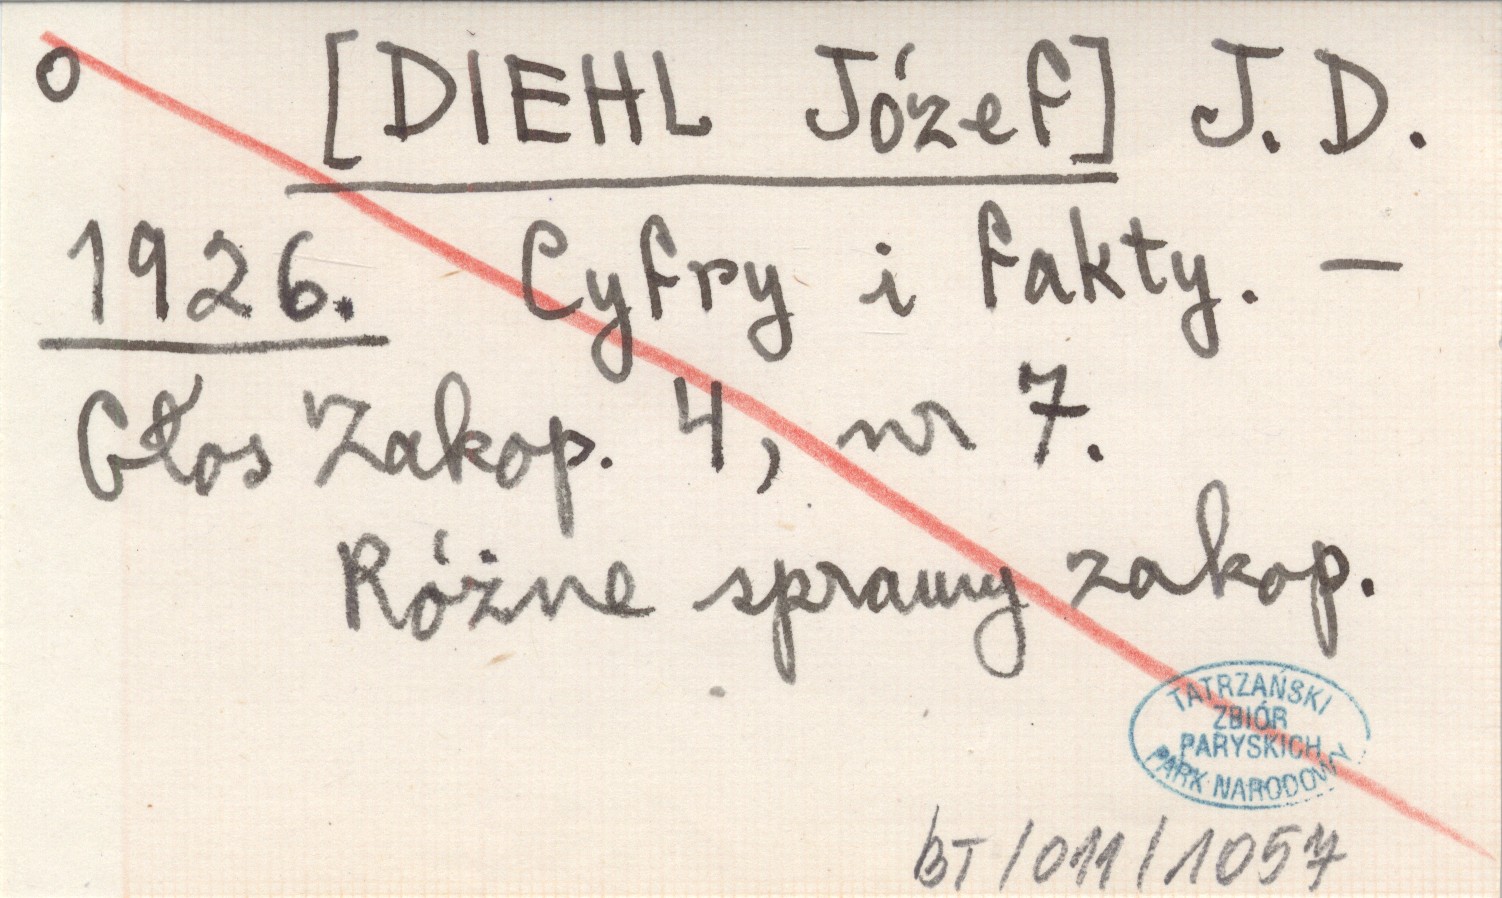 o [DIEHL Józef] J. D.
1926. Cyfry i fakty. —
Głos Zakop. 4, nr 7.
Różne sprawy zakop.
TATRZAŃSKI
ZBIÓR
PARYSKICH
PARK NARODOWY
BT/011/1057